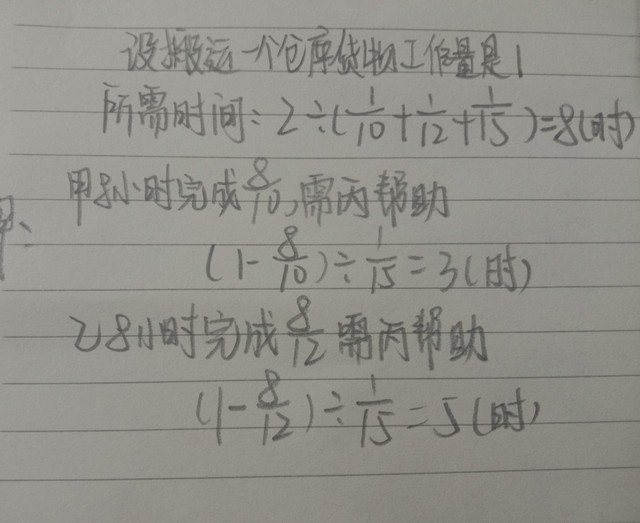 设搬运一个仓库货物工作量是1
所需时间:2÷(1/10+1/12+1/15)=8(时)
甲8小时完成8/10,需丙帮助
(1-8/10)÷1/15=3(时)
乙8小时完成8/12需丙帮助
(1-8/12)÷1/15=5(时)